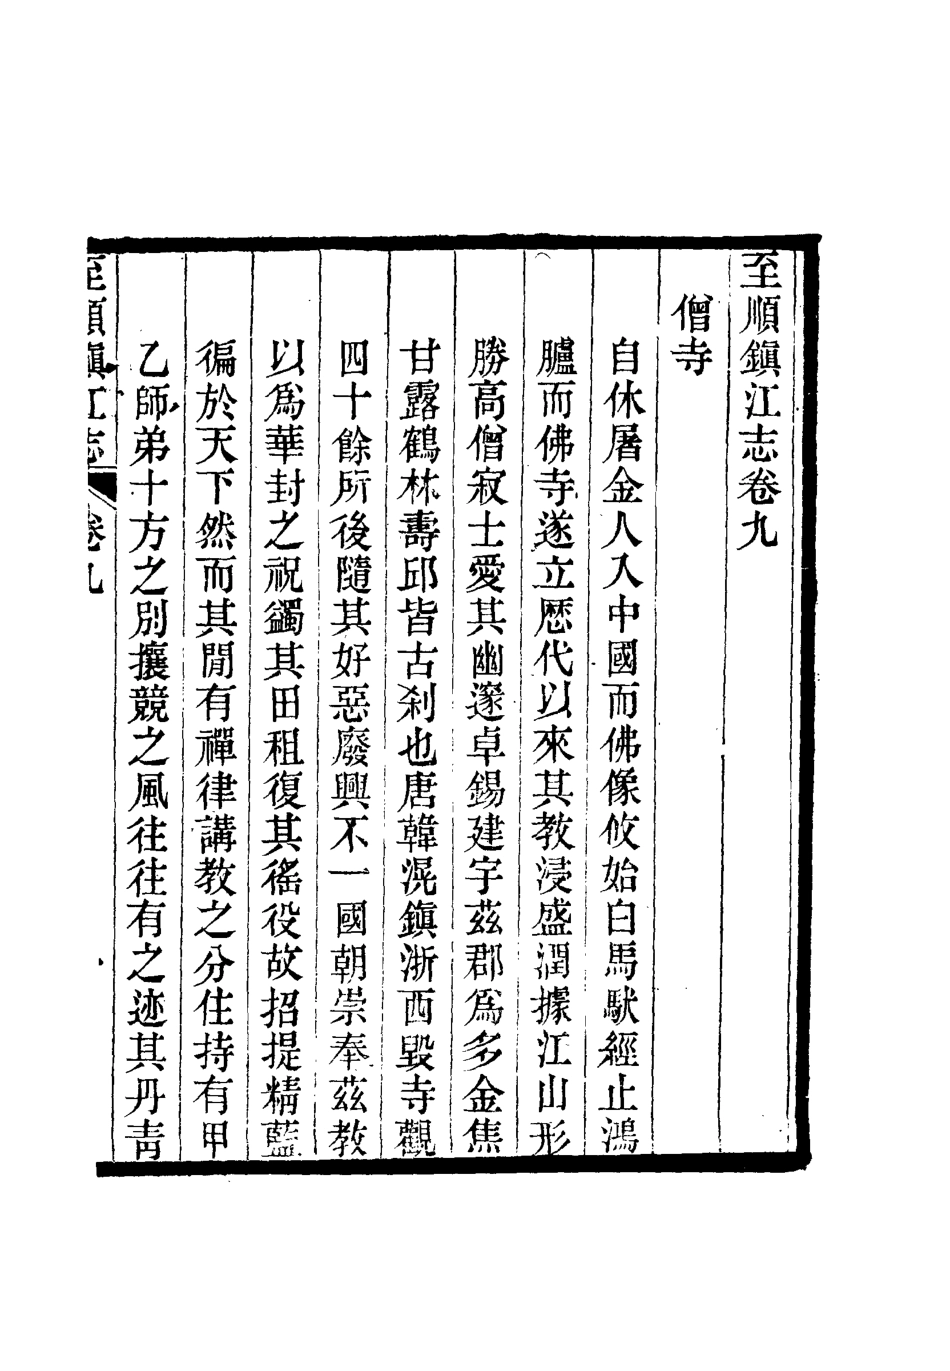 至順鎭江志卷九
僧寺
自休屠金人入中國而佛像攸始白馬馱經止鴻
臚而佛寺遂立歷代以來其教浸盛潤據江山形
勝高僧寂士愛其幽邃卓錫建宇茲郡爲多金焦
甘露鶴林壽邱皆古刹也唐韓滉鎭浙西毀寺觀
四十餘所後隨其好惡廢興不一國朝崇奉茲教
以爲華封之祝蠲其田租復其徭役故招提精藍
徧於天下然而其閒有禪律講教之分住持有甲
乙師弟十方之別攘競之風往往有之迹其丹靑
至順鎭江志 卷九